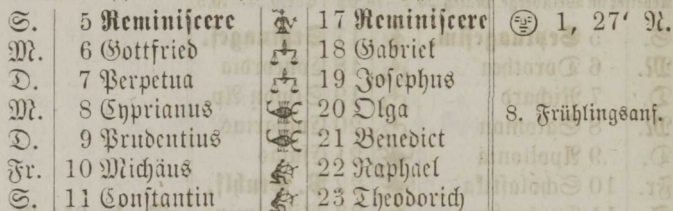 S. 5 Reminiſcere 17 Reminiſcere 1, 27′ N.
M. 6 Gottfried 18 Gabriel
D. 7 Perpetua 19 Joſephus
M. 8 Cyprianus 20 Olga 8. Frühlingsanf.
D. 9 Prudentius 21 Benedict
Fr. 10 Michäus 22 Raphael
S. 11 Conſtantin 23 Theodorich